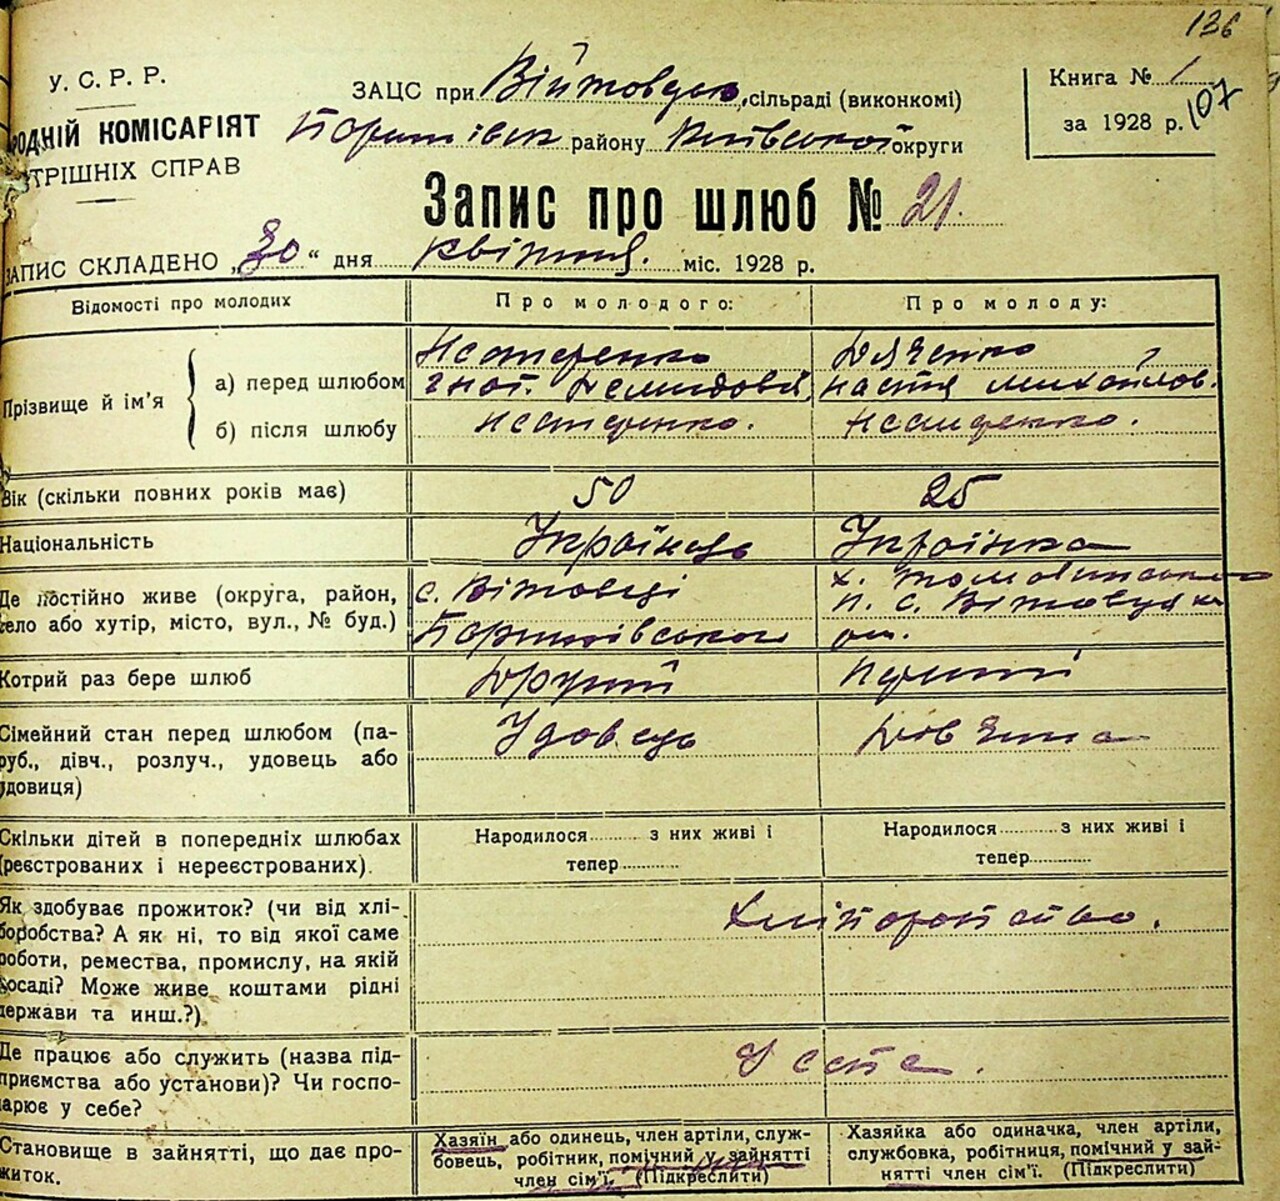 136
У. С. Р. Р.
РОДНІЙ КОМІСАРІЯТ
ТРІШНІХ СПРАВ
ЗАЦС при Війтовец. сільраді (виконкомі)
району Київської округи
Книга № 1
за 1928 р. 107
Запис про шлюб № 21.
ЗАПИС СКЛАДЕНО „30“ дня квітня. міс. 1928 р.
Відомості про молодих
Про молодого:
Про молоду:
Прізвище й ім’я
а) перед шлюбом
Нестеренко
Гнат. Демидовій
Дяченко
Настя Михайлов.
б) після шлюбу
Нестеренко.
Нестеренко.
Вік (скільки повних років має)
50
25
Національність
Українець
Українка
Де постійно живе (округа, район,
село або хутір, місто, вул., № буд.)
с. Вітовеці
х.
п. с.
Котрий раз бере шлюб
Другий
Перший
Сімейний стан перед шлюбом (па-
руб., дівч., розлуч., удовець або
удовиця)
Удовець
Дов
Скільки дітей в попередніх шлюбах
(реєстрованих і нереєстрованих).
Народилося з них живі і
тепер
Народилося з них живі і
тепер
Як здобуває прожиток? (чи від хлі-
боробства? А як ні, то від якої саме
роботи, ремества, промислу, на якій
посаді? Може живе коштами рідні
держави та инш.?)
Хліборобство.
Де працює або служить (назва під-
приємства або установи)? Чи госпо-
дарює у себе?
У себе.
Становище в зайнятті, що дає про-
житок.
Хазяїн або одинець, член артіли, служ-
бовець, робітник, помічний у зайнятті
член сім’ї. (Підкреслити)
Хазяйка або одиначка, член артіли,
службовка, робітниця, помічний у зай-
нятті член сім’ї. (Підкреслити)